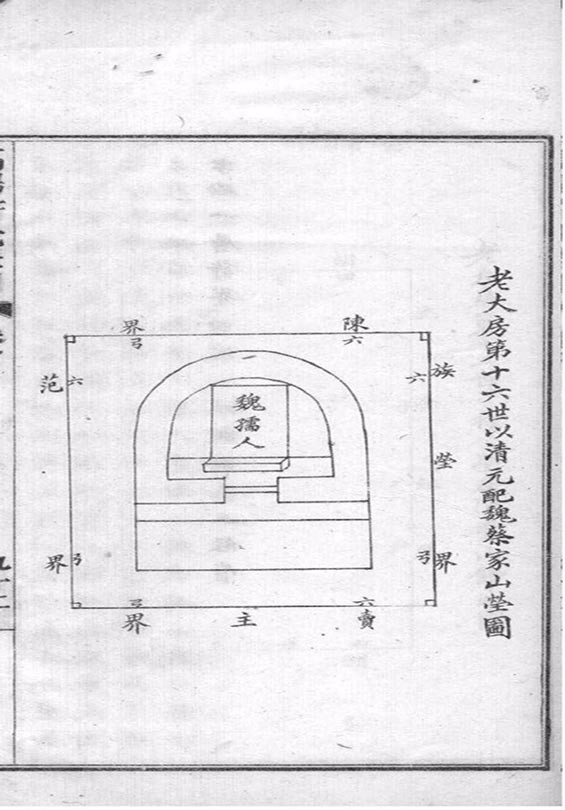 老大房第十六世以清元配魏蔡家山塋圖
陳界
六弓
族塋界
六弓
魏孺人
范界
六弓
賣主界
六弓